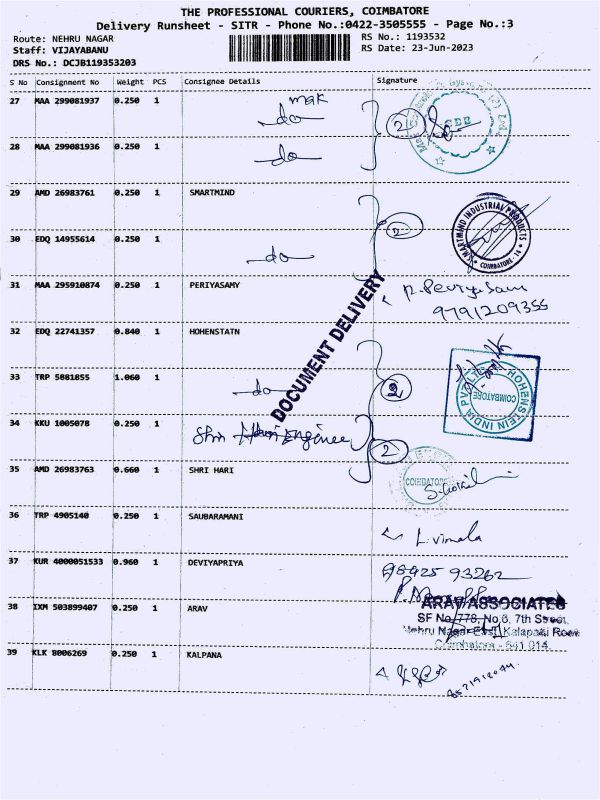 THE PROFESSIONAL COURIERS, COIMBATORE
Delivery Runsheet - SITR - Phone No.:0422-3505555 - Page No.:3
Route: NEHRU NAGAR RS No.: 1193532
Staff: VIJAYABANU RS Date: 23-Jun-2023
DRS No.: DCJB119353203
S No Consignment No Weight PCS Consignee Details Signature
27 MAA 299081937 0.250 1 mak
do 2
28 MAA 299081936 0.250 1 do
29 AMD 26983761 0.250 1 SMARTMIND
SMARTMIND INDUSTRIAL PRODUCTS
COIMBATORE - 14
30 EDQ 14955614 0.250 1 do
31 MAA 295910874 0.250 1 PERIYASAMY
9791209355
32 EDQ 22741357 0.840 1 HOHENSTATN
DOCUMENT DELIVERY
33 TRP 5881855 1.060 1 do 2
HOHENSTEIN INDIA PVT LTD
COIMBATORE
34 KKU 1005078 0.250 1 Shri Hari Enginee 2
35 AMD 26983763 0.660 1 SHRI HARI
COIMBATORE
36 TRP 4905140 0.250 1 SAUBARAMANI
L. vimala
37 KUR 4000051533 0.960 1 DEVIYAPRIYA
98425 93262
38 IXM 503899407 0.250 1 ARAV
ARAV ASSOCIATES
SF No. 778, No.6, 7th Street,
Nehru Nagar East, Kalapatti Road
Coimbatore - 641 014.
39 KLK 8006269 0.250 1 KALPANA